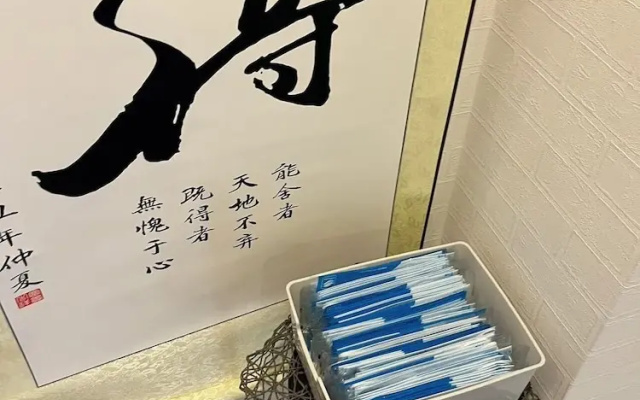 得
能舍者
天地不弃
既得者
無愧于心
年仲夏